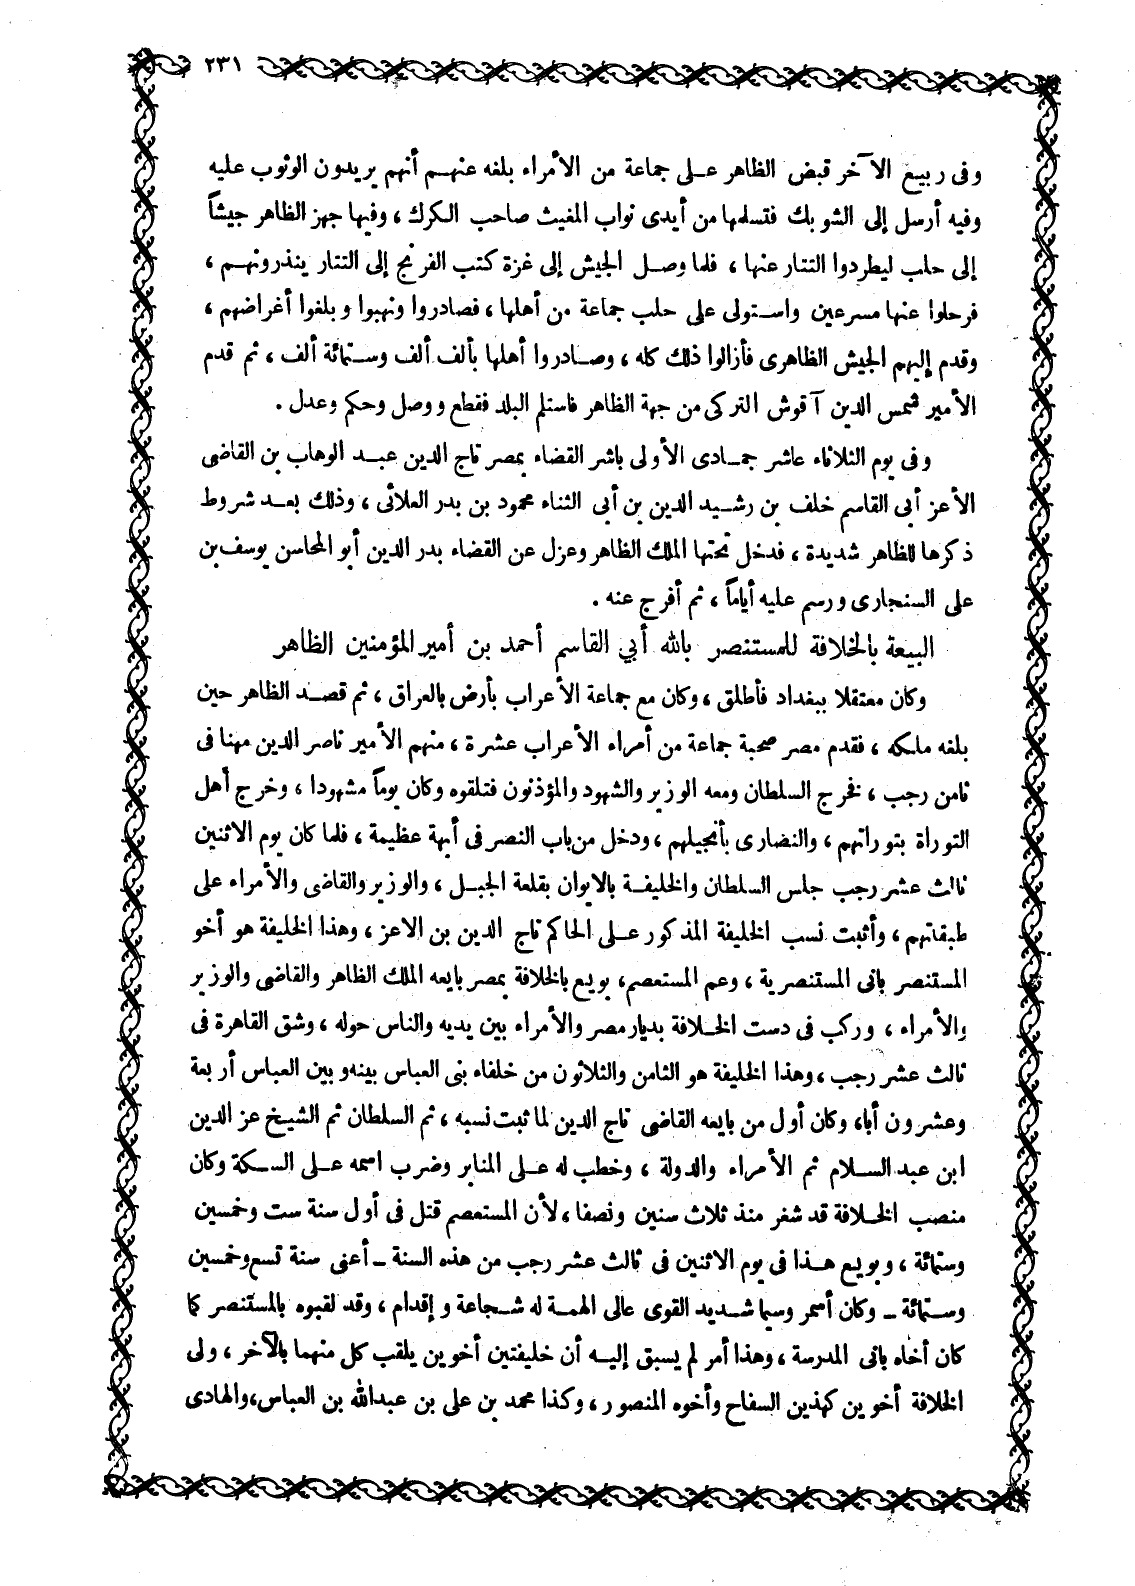 ٢٣١
وفى ربيع الآخر قبض الظاهر على جماعة من الأمراء بلغه عنهم أنهم يريدون الوثوب عليه
وفيه أرسل إلى الشوبك فتسلمها من أيدى نواب المغيث صاحب الكرك ، وفيها جهز الظاهر جيشاً
إلى حلب ليطردوا التتار عنها ، فلما وصل الجيش إلى غزة كتب الفرنج إلى التتار ينذرونهم ،
فرحلوا عنها مسرعين واستولى على حلب جماعة من أهلها ، فصادروا ونهبوا وبلغوا أغراضهم ،
وقدم إليهم الجيش الظاهرى فأزالوا ذلك كله ، وصادروا أهلها بألف ألف وستمائة ألف ، ثم قدم
الأمير شمس الدين آقوش التركى من جهة الظاهر فاستلم البلد فقطع ووصل وحكم وعدل .
وفى يوم الثلاثاء عاشر جمادى الأولى باشر القضاء بمصر تاج الدين عبد الوهاب بن القاضى
الأعز أبى القاسم خلف بن رشيد الدين بن أبى الثناء محمود بن بدر العلائى ، وذلك بعد شروط
ذكرها للظاهر شديدة ، فدخل تحتها الملك الظاهر وعزل عن القضاء بدر الدين أبو المحاسن يوسف بن
على السنجارى ورسم عليه أياماً ، ثم أفرج عنه .
البيعة بالخلافة للمستنصر بالله أبي القاسم أحمد بن أمير المؤمنين الظاهر
وكان معتقلا ببغداد فأطلق ، وكان مع جماعة الأعراب بأرض بالعراق ، ثم قصد الظاهر حين
بلغه ملكه ، فقدم مصر صحبة جماعة من أمراء الأعراب عشرة ، منهم الأمير ناصر الدين مهنا فى
ثامن رجب ، فخرج السلطان ومعه الوزير والشهود والمؤذنون فتلقوه وكان يوماً مشهودا ، وخرج أهل
التوراة بتوراتهم ، والنضارى بأنجيلهم ، ودخل من باب النصر فى أبهة عظيمة ، فلما كان يوم الاثنين
ثالث عشر رجب جلس السلطان والخليفة بالايوان بقلعة الجبل ، والوزير والقاضى والأمراء على
طبقاتهم ، وأثبت نسب الخليفة المذكور على الحاكم تاج الدين بن الاعز ، وهذا الخليفة هو أخو
المستنصر بانى المستنصرية ، وعم المستعصم ، بويع بالخلافة بمصر بايعه الملك الظاهر والقاضى والوزير
والأمراء ، وركب فى دست الخلافة بديار مصر والأمراء بين يديه والناس حوله ، وشق القاهرة فى
ثالث عشر رجب ، وهذا الخليفة هو الثامن والثلاثون من خلفاء بنى العباس بينه وبين العباس أربعة
وعشرون أبا، وكان أول من بايعه القاضى تاج الدين لما ثبت نسبه ، ثم السلطان ثم الشيخ عز الدين
ابن عبد السلام ثم الأمراء والدولة ، وخطب له على المنابر وضرب اسمه على السكة وكان
منصب الخلافة قد شغر منذ ثلاث سنين ونصفا ، لأن المستعصم قتل فى أول سنة ست وخمسين
وستمائة ، وبويع هذا فى يوم الاثنين فى ثالث عشر رجب من هذه السنة ـ أعنى سنة تسع وخمسين
وستمائة ـ وكان أسمر وسيما شديد القوى عالى الهمة له شجاعة وإقدام ، وقد لقبوه بالمستنصر كما
كان أخاه بانى المدرسة ، وهذا أمر لم يسبق إليه أن خليفتين أخوين يلقب كل منهما بالآخر ، ولى
الخلافة أخوين كهذين السفاح وأخوه المنصور ، وكذا محمد بن على بن عبدالله بن العباس، والهادى